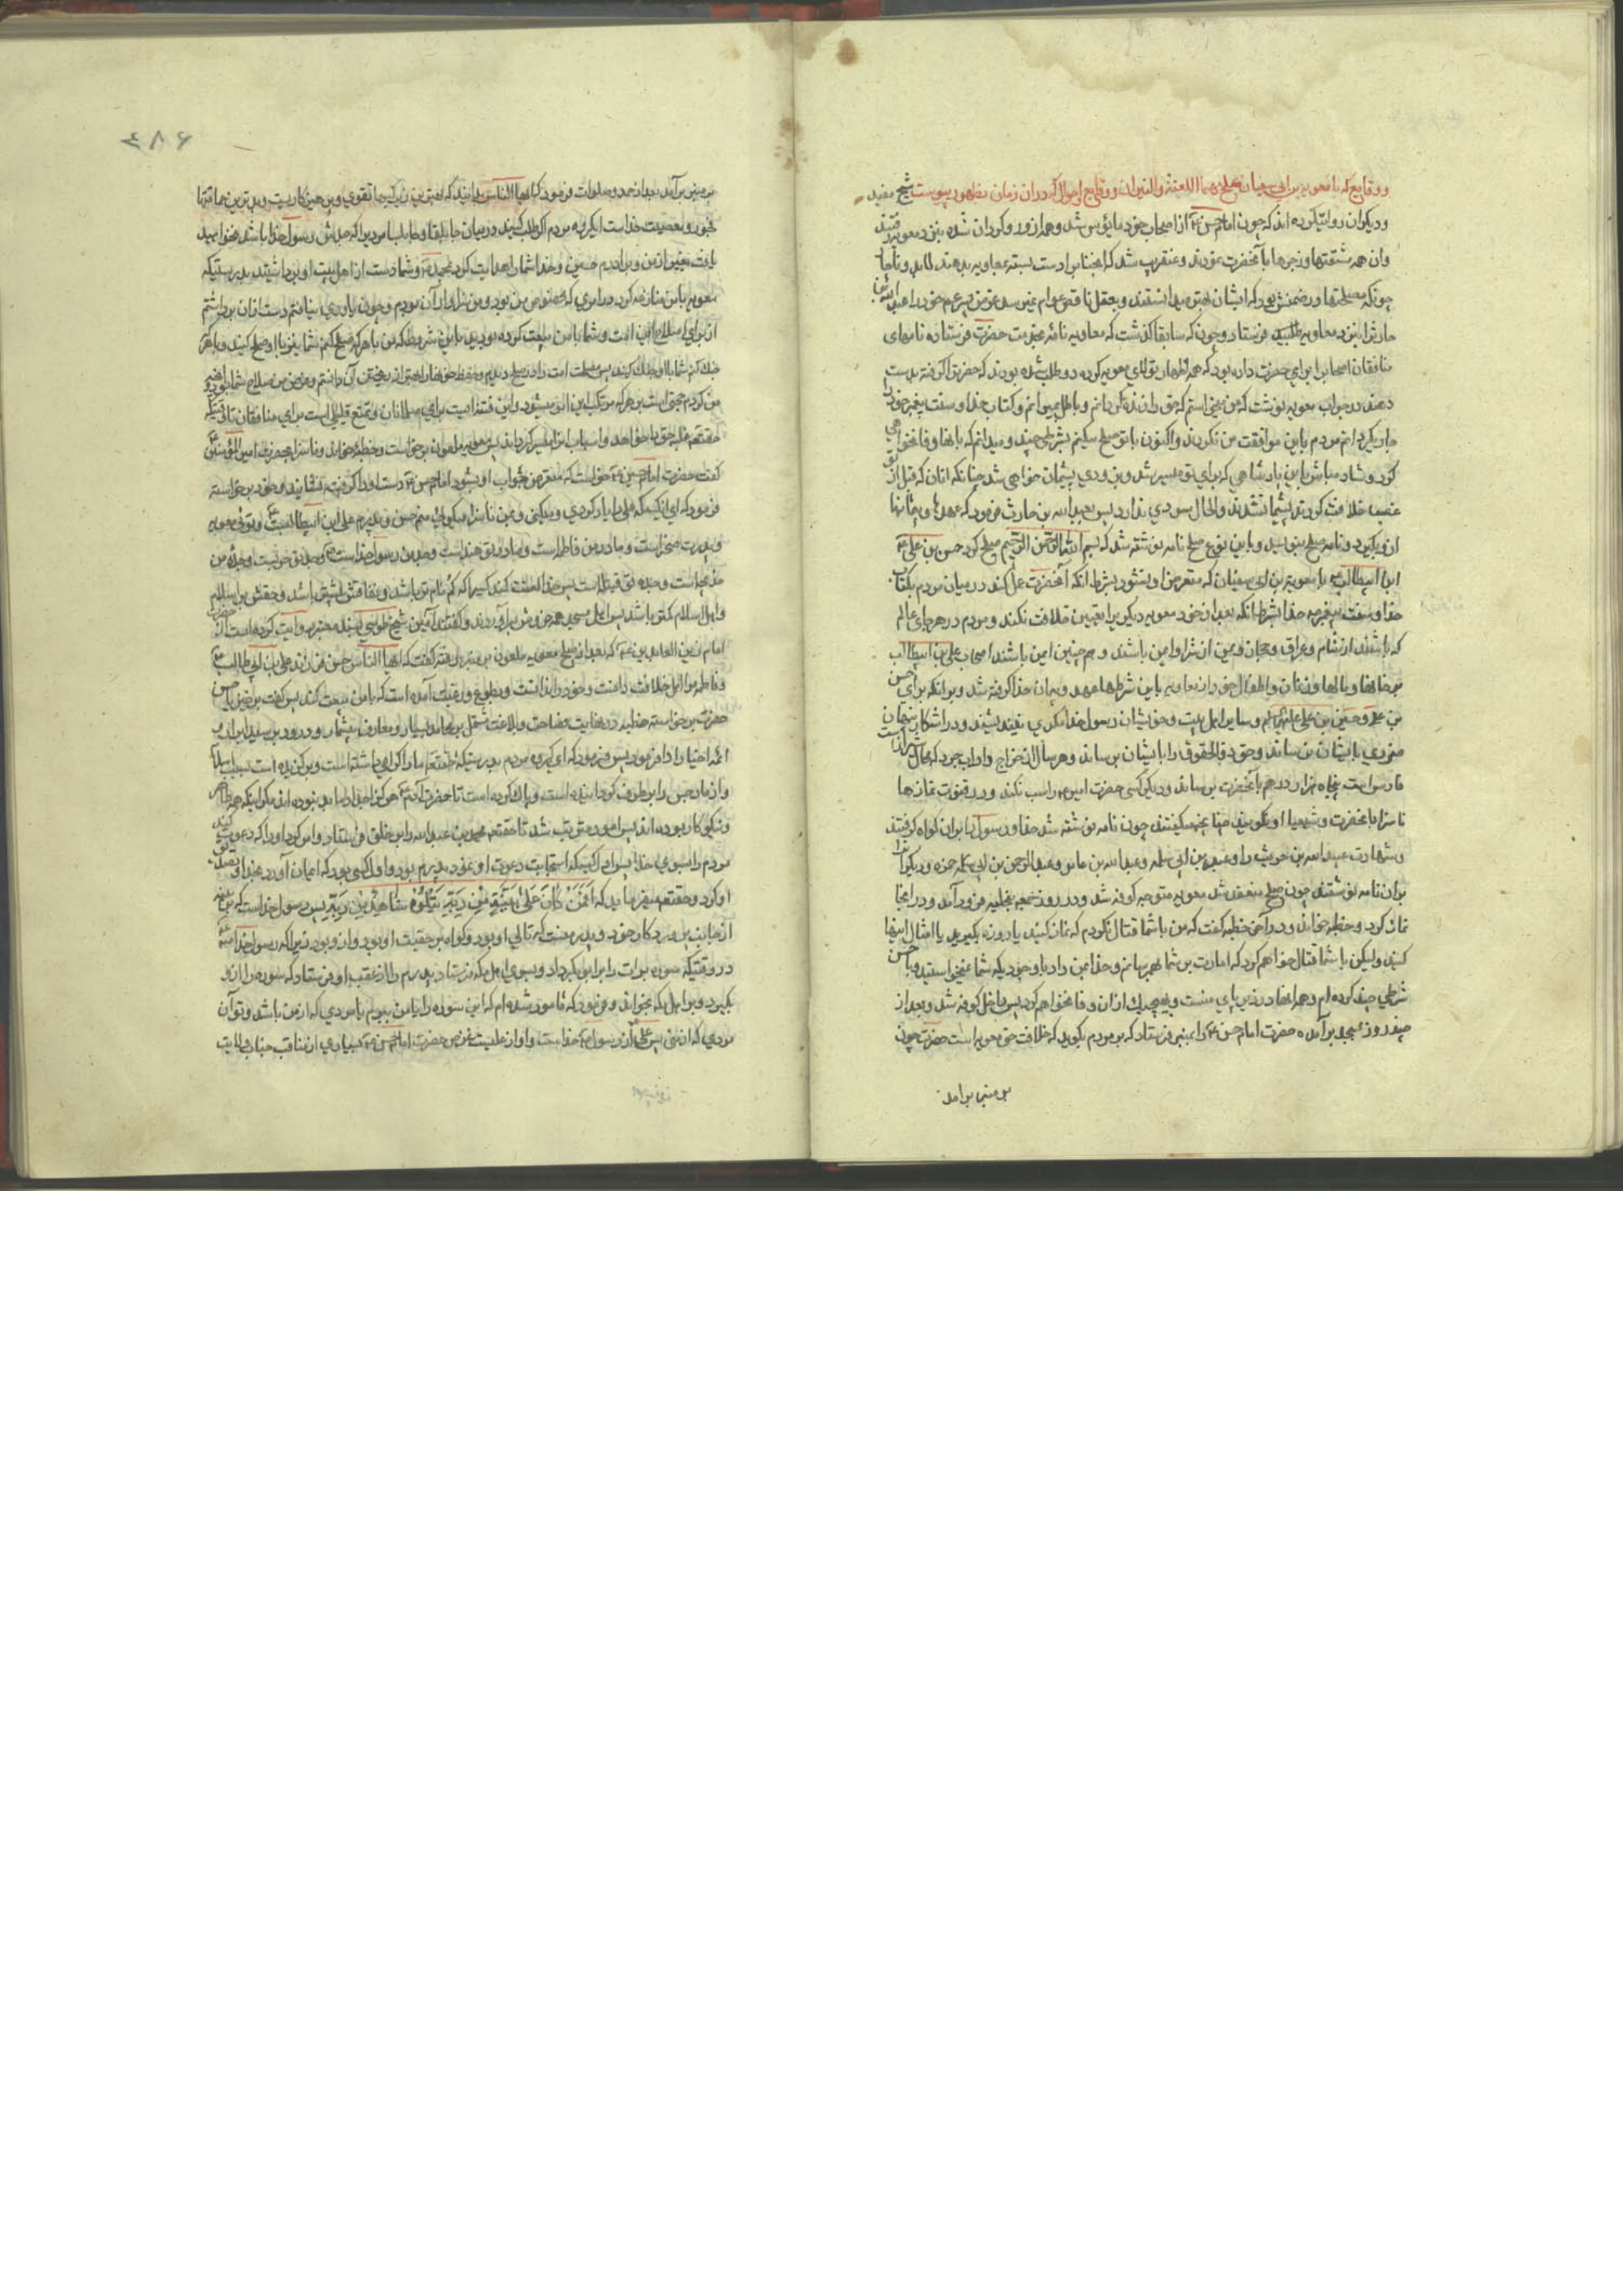 و وقایع که با معویة بن ابی سفیان علیهما اللعنة والنیران و وقایع احوال که در ان زمان بظهور پیوست شیخ مفید
و دیکران روایتکرده اند که چون امام حسن ع از اصحاب خود مایوس شد و همه ازو رو کردان شده بنزد معویه رفتند
و ان همه با آنحضرت نمودند و عنقریب شد که آنجناب را دست بسته بمعاویه بدهند لابد و ناچار
چونکه مصلحتها در ضمنش بود که ایشان بهتر میدانستند و بعقل ناقص عوام نمیرسد پسر عم خود را عبدالله بن
حارث را بنزد معاویه فرستاد و چون که سابقا کذشت که معاویه نامه بخدمت حضرت فرستاده نامهای
منافقان اصحاب را برای حضرت داده بود که همه اظهار تولای معویه کرده و طلب شده بودند که حضرترا کرفته بدست
دهند در جواب معویه نوشت که من میخواستم که حق را زنده کردانم و باطل بمیرانم و کتاب خدا و سنت پیغمبر خود را
جاری کردانم مردم با من موافقت نکردند و اکنون با تو صلح میکنم بشرطی چند و میدانم که بانها وفا نخواهی
کرد و شاد مباش باین پادشاهی که برای تو میسر شد و بزودی پشیمان خواهی شد چنانکه انان که قبل از تو
غصب خلافت کردند پشیمان شدند و الحال سودی ندارد پس عبدالله بن حارث فرمود که عهدها و پیمانها
ازو بکیرد و نامه صلح بنویسد و باین نوع صلح نامه نوشته شد که بسم الله الرحمن الرحیم صلح کرد حسن بن علی ع
ابن ابیطالب با معویة بن ابی سفیان که متعرض او نشود بشرط انکه آنحضرت عمل کند در میان مردم بکتاب
خدا و سنت پیغمبر خدا بشرط آنکه بعد از خود معویه دیکری را تعیین خلافت نکند و مردم در هر جای عالم
که باشند از شام و عراق و حجاز و یمن از شر او ایمن باشند و هم چنین ایمن باشند اصحاب علی بن ابیطالب
بر جانها و مالها و زنان و اطفال خود از معاویه باین شرطها عهد و پیمان خدا کرفته شد و بر انکه برای حسن
بن علی و حسین بن علی علیهم السلام و سایر اهل بیت و خویشان رسول خدا مکری نیندیشند و در اشکار و پنهان
ضرری بایشان نرساند و حق ذوالحقوق را بایشان برساند و هر سال از خراج دارابجرد که بحال شیراز است
فارس است پنجاه هزار درهم بآنحضرت برساند و دیکر کسی حضرت امیر را سب نکند و در قنوت نمازها
ناسزا بآنحضرت و شیعیان او نکویند چنانچه میکفتند چون نامه نوشته شد خدا و رسول را بران کواه کرفتند
و شهادت عبدالله بن حریث را و عمرو بن ابی سلمه و عبدالله بن عامر و عبدالرحمن بن ابی سمره و دیکران را
بران نامه نوشتند چون صلح منعقد شد معویه متوجه کوفه شد و در روز جمعه بنخلیه فرود آمد و در انجا
نماز کرد و خطبه خواند و در آخر خطبه کفت که من با شما قتال نکردم که نماز کنید یا روزه بکیرید یا امثال اینها
کنید ولیکن با شما قتال خواهم کرد که امارت بر شما بهم رسانم و خدا بمن داد با وجودیکه شما نمیخواستید و با حسن
شرطی چند کرده ام و همه انها در زیر پای منست و بهیچیک ازان وفا نخواهم کرد پس داخل کوفه شد و بعد از
چند روز بمسجد برآمده حضرت امام حسن ع را بمنبر فرستاد که بر مردم بکوید که خلافت حق معویه است حضرت چون
بر منبر برامد
۶۸۶
بر منبر برآمد بعد از حمد و صلوات فرمود که ایها الناس بدانید که بهترین زیرکیها تقوی و پرهیزکاریست و بدترین حماقتها
فجور و معصیت خداست ای کروه مردم اکر طلب کنید در میان جابلقا و جابلسا مردیرا که جدش رسول خدا باشد نخواهید
یافت بغیر از من و برادرم حسین و خدا شما را هدایت کرد بمحمد و شما دست از اهل بیت او برداشتید بدرستیکه
معویه با من منازعه کرد در امری که مخصوص من بود و من سزاوار آن بودم و چون یاوری نیافتم دست ازان برداشتم
از برای صلاح این امت و شما با من بیعت کرده بودید باین شرط که من با هر که صلح کنم شما نیز با او صلح کنید و با هر که
جنک کنم شما با او جنک کنید پس مصلحت امت را در صلح دیدم و حفظ خونها را بهتر از ریختن آن دانستم و غرض من صلاح شما بود و انچه
من کردم حجتی است بر هر که مرتکب این امر میشود و این فتنه ایست برای مسلمانان و تمتع قلیلی است برای منافقان تا وقتیکه
حقتعالی غلبه حق را خواهد و اسباب انرا میسر کرداند پس معویه ملعون برخواست و خطبه خواند و ناسزا بحضرت امیرالمؤمنین ع
کفت حضرت امام حسین ع خواست که متعرض جواب او بشود امام حسن ع دست او را کرفت و نشانید و خود برخواسته
فرمود که ای انکسیکه علی را یاد کردی و بمن ناسزا میکوئی منم حسن و پدرم علی ابن ابیطالبست و توئی معویه
و پدرت صخر است و مادر من فاطمه است و مادر تو هند است و جد من رسول خداست و جد تو حربست و جده من
خدیجه است و جده تو قتیله است پس خدا لعنت کند کسیرا که کم نام تر باشد و
و اهل اسلام کمتر باشد پس اهل مسجد همه خروش براوردند و کفتند آمین شیخ طوسی بسند معتبر روایت کرده است از
امام زین العابدین ع که بعد از صلح معویه ملعون بر منبر رفته کفت که ایها الناس حسن فرزند علی بن ابی طالب
و فاطمه مرا اهل خلافت دانست و خود را ندانست و بطوع و رغبت آمده است که با من بیعت کند پس کفت برخیز یا حسن
حضرت برخواسته خطبه در نهایت فصاحت و بلاغت مشتمل بر محامد بسیار و معارف بیشمار و درود بر سید ابرار و
ائمه اخیار ادا فرمود پس فرمود که ای کروه مردم بدرستیکه حقتعالی ما را کرامی داشته است و برکزیده است
و از ما رجس را برطرف کردانیده است و پاک کرده است تا حضرت آدم
و نیکوکار بوده اند پس امور مترتب شد تا حقتعالی محمد بن عبدالله را بر خلق فرستاد و امر کرد او را که دعوت کند
مردم را بسوی خدا پس اول کسیکه استجابت دعوت او نمود پدرم بود و اول کسی بود که ایمان آورد بخدا و تصدیق
او کرد و حقتعالی میفرماید که افمن کان علی بینة من ربه و یتلوه شاهد منه پس رسول خداست که بر بینه
از جانب پروردکار خود و پدر منست که تالی او بود و کواه بر حقیت او بود و ازو بود زیرا که رسول خدا
در وقتیکه سوره برات را بابی بکر داد و بسوی اهل مکه فرستاد پدرم را از عقب او فرستاد که سوره را ازو
بکیرد و بر اهل مکه بخواند و فرمود که مامور شده ام که این سوره را یا من ببرم یا مردی که از من باشد و تو آن
مردی که از منی پس علی از رسول خداست و او از علیست غرض حضرت امام حسن ع بسیاری از مناقب جناب ولایت